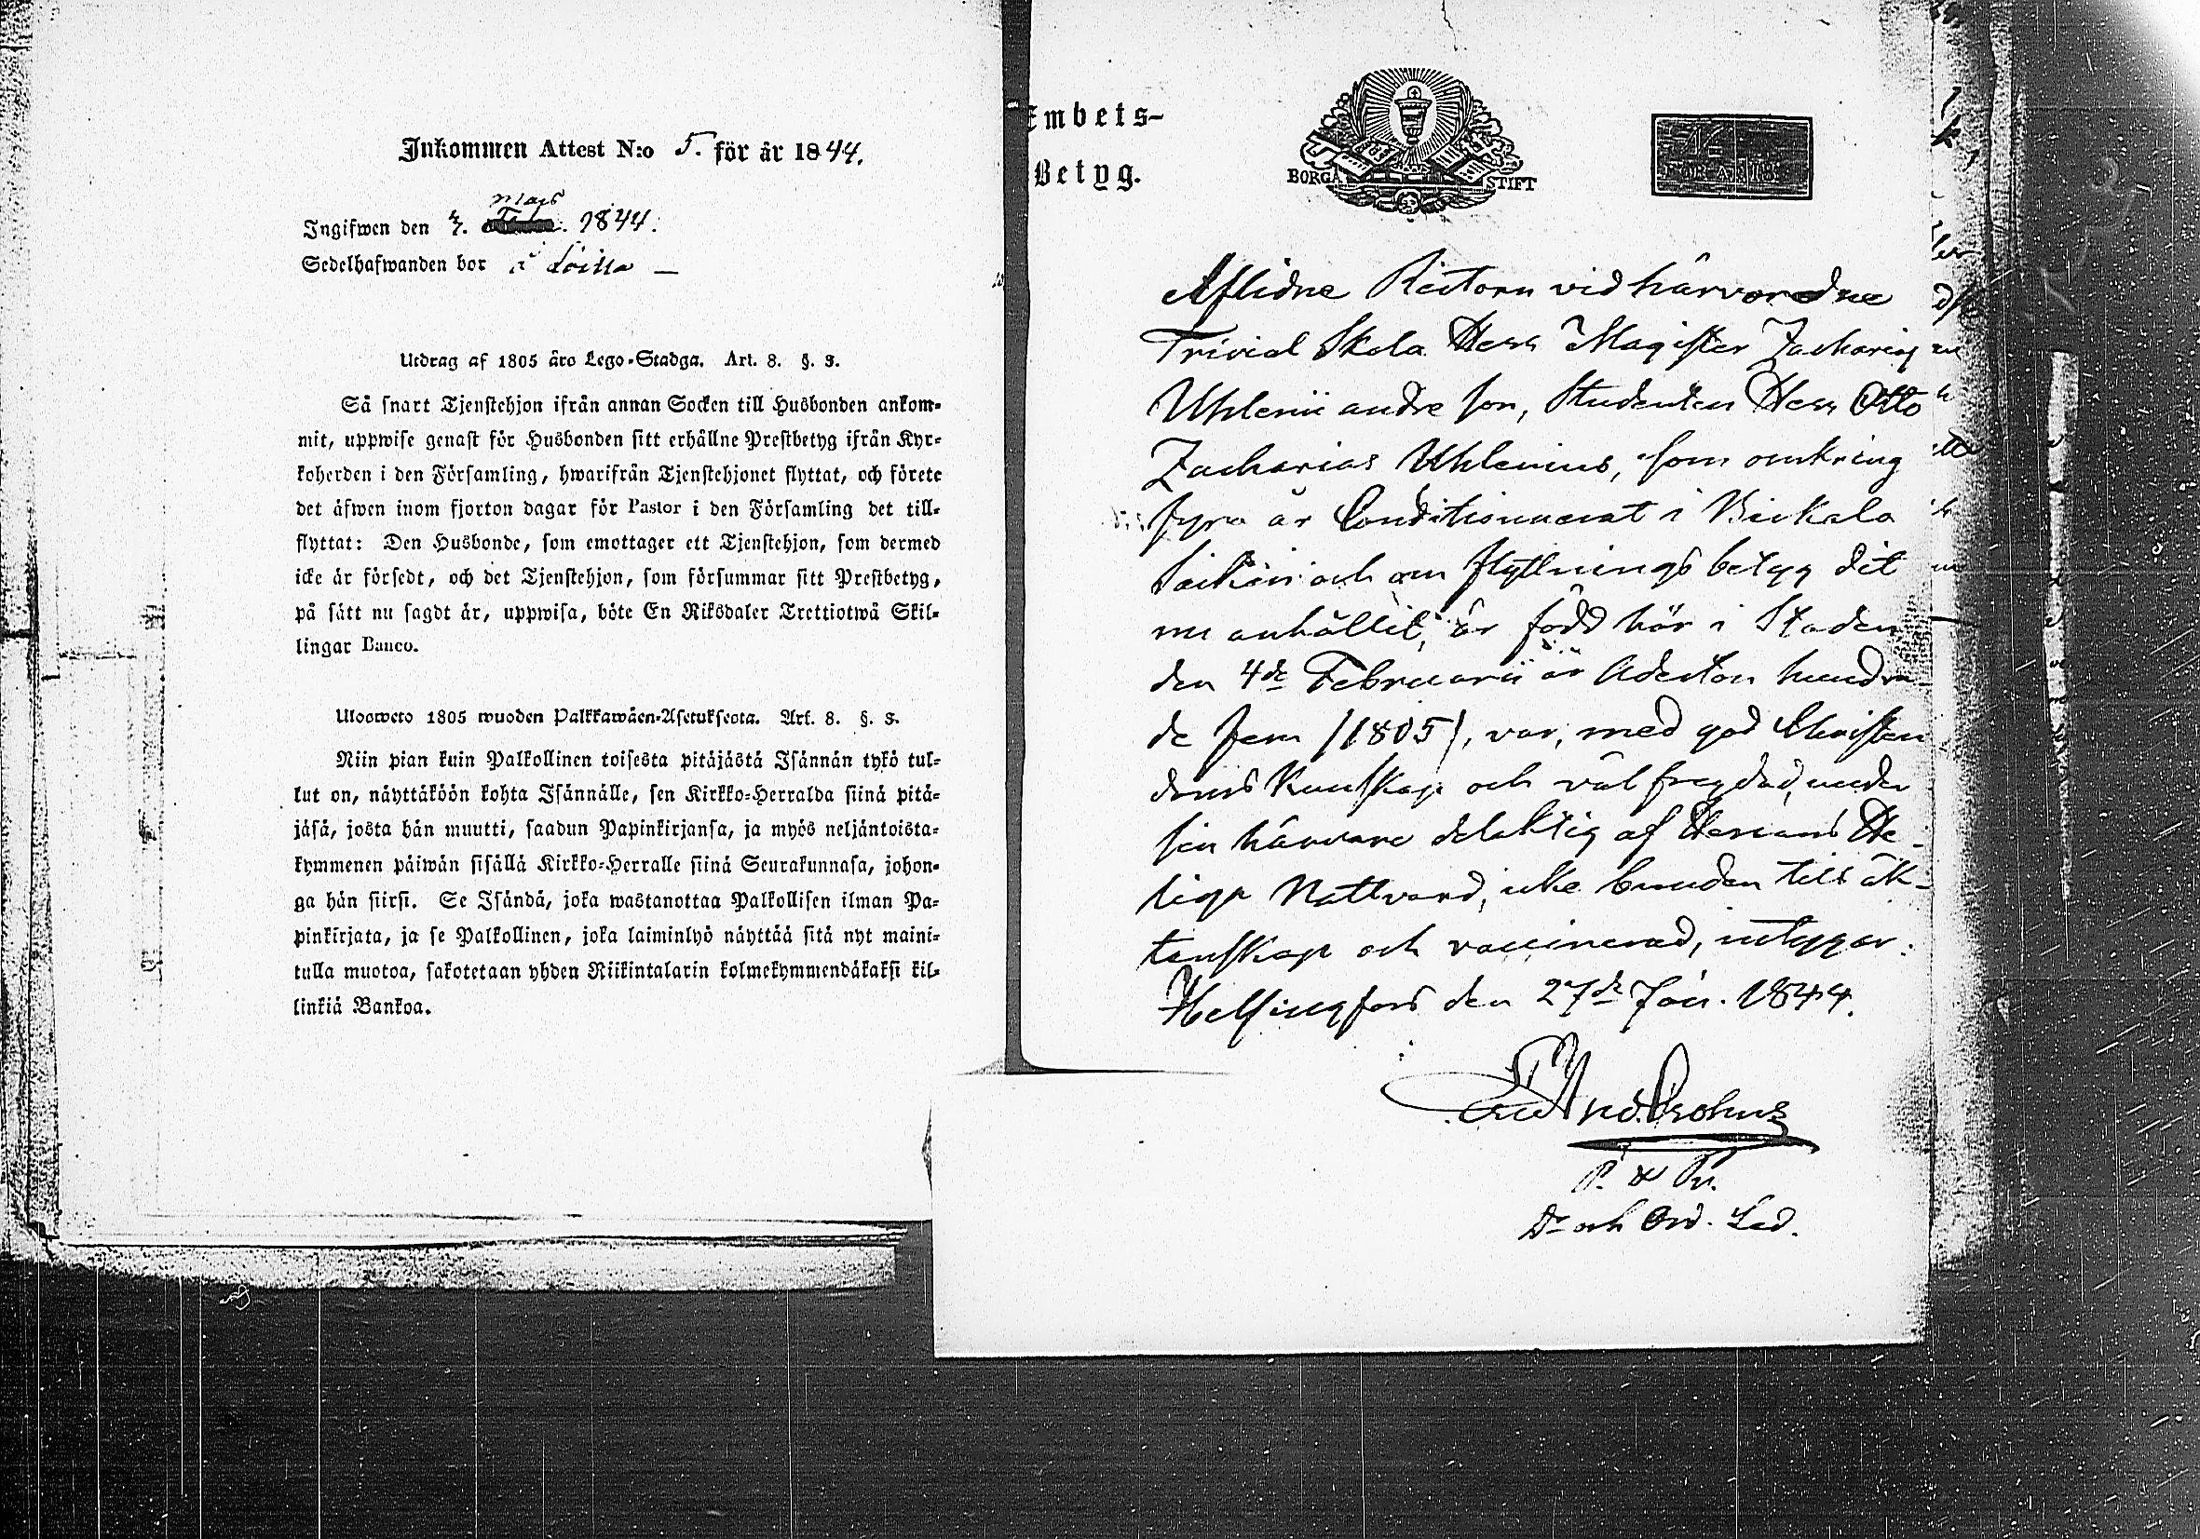 Inkommen Attest N:o 5. för år 1844.
mars
Ingifwen den 4. 1844.
Sedelhafwanden bor i Loilla —
Utdrag af 1805 åro Lego-Stadga. Art. 8. §. 3.
Så snart Tjenstehjon ifrån annan Socken till Husbonden ankom-
mit, uppwise genast för Husbonden sitt erhållne Prestbetyg ifrån Kyr-
koherden i den Församling, hwarifrån Tjenstehjonet flyttat, och förete
det äfwen inom fjorton dagar för Pastor i den Församling det till-
flyttat: Den Husbonde, som emottager ett Tjenstehjon, som dermed
icke är försedt, och det Tjenstehjon, som försummar sitt Prestbetyg,
på sätt nu sagdt är, uppwisa, böte En Riksdaler Trettiotwå Skil-
lingar Banco.
Ulosweto 1805 wuoden Palkkawäen-Asetuksesta. Art. 8. §. 3.
Niin pian kuin Palkollinen toisesta pitäjästä Isännän tykö tul-
lut on, näyttäköön kohta Isännälle, sen Kirkko-Herralda siinä pitä-
jäsä, josta hän muutti, saadun Papinkirjansa, ja myös neljäntoista-
kymmenen päiwän sisällä Kirkko-Herralle siinä Seurakunnasa, johon-
ga hän siirsi. Se Isändä, joka wastanottaa Palkollisen ilman Pa-
pinkirjata, ja se Palkollinen, joka laiminlyö näyttää sitä nyt maini-
tulla muotoa, sakotetaan yhden Riikintalarin kolmekymmendäkaksi kil-
linkiä Bankoa.
Embets-
Betyg.
BORGÅ STIFT
N:o
FÖR ÅR 18
Aflidne Rectorn vid härvarande
Trivial Skola Herr Magister Zacharias
Uhlenii andre son, Studenten Herr Otto
Zacharias Uhlenius, som omkring
fyra år Conditionnerat i Birkala
Socken och om flyttnings betyg dit
nu anhållit, är född här i Staden
den 4de Februarii år Aderton hundra-
de fem /1805/, var, med god Christen
doms Kunskap och väl frejdad, under
sin härvaro delaktig af Herrans He-
liga Nattvard, icke bunden till äk-
tenskap och vaccinerad, intygar.
Helsingfors den 27de Jan. 1844.
Crohns
P. & Pr.
Dr och Ord. Led.